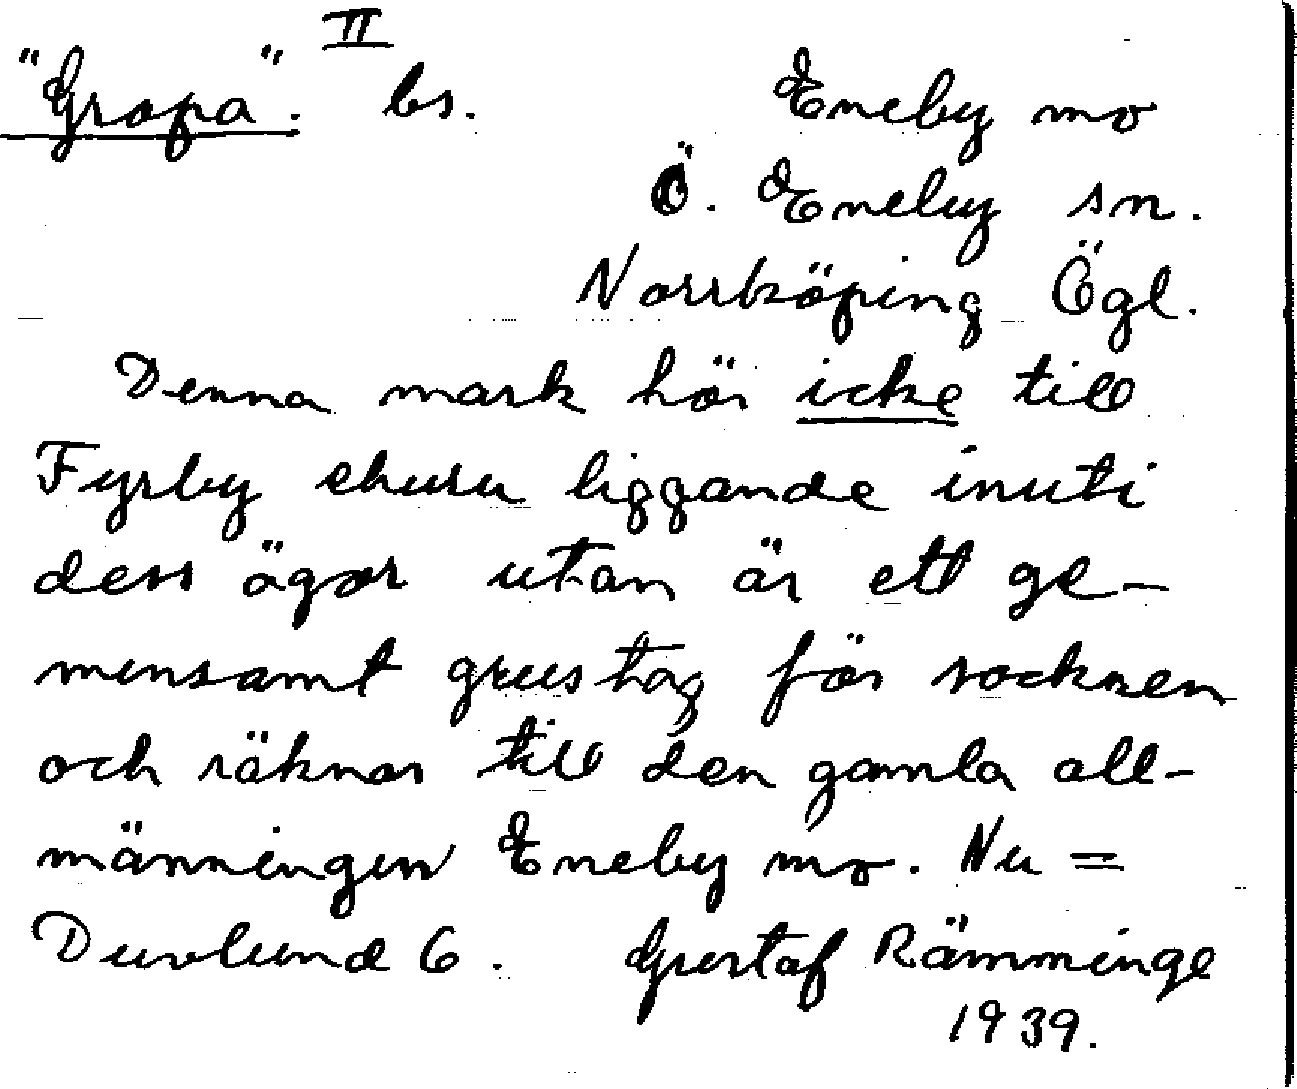 "Gropa". II bs. Eneby mo
Ö. Eneby sn.
Norrköping Ögl.
Denna mark hör icke till
Fyrby ehuru liggande inuti
dess ägor utan är ett ge-
mensamt grustag för socknen
och räknas till den gamla all-
männingen Eneby mo. Nu =
Duvlund 6. Gustaf Rämminge
1939.